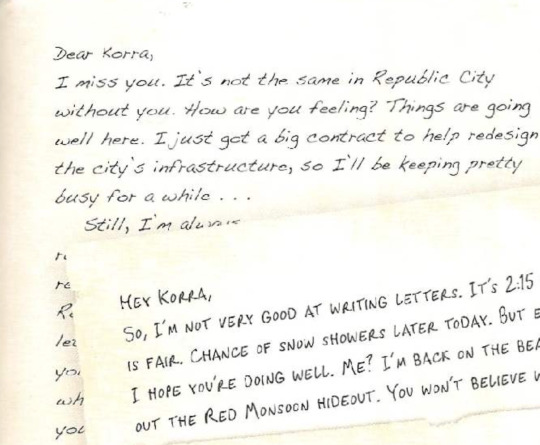 Dear Korra,
I miss you. It's not the same in Republic City
without you. How are you feeling? Things are going
well here. I just got a big contract to help redesign
the city's infrastructure, so I'll be keeping pretty
busy for a while . . .
Still, I'm
HEY KORRA,
SO, I'M NOT VERY GOOD AT WRITING LETTERS. IT'S 2:15
IS FAIR. CHANCE OF SNOW SHOWERS LATER TODAY. BUT
I HOPE YOU'RE DOING WELL. ME? I'M BACK ON THE
OUT THE RED MONSOON HIDEOUT. YOU WON'T BELIEVE